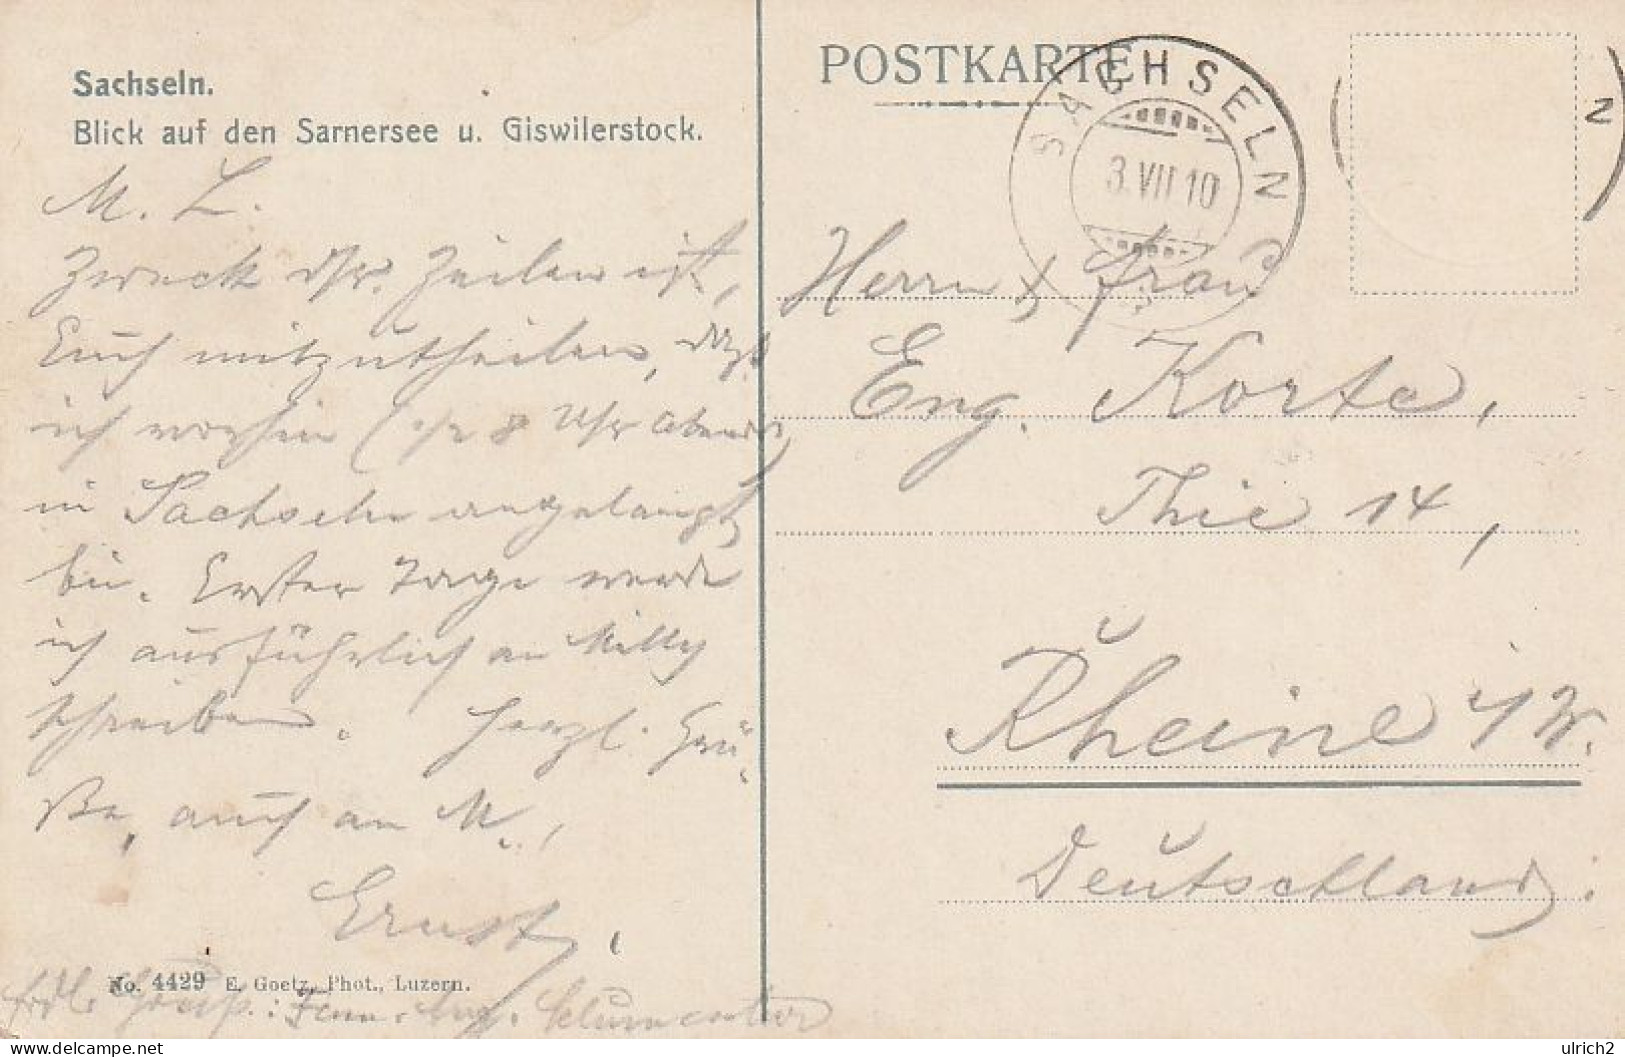 Sachseln.
Blick auf den Sarnersee u. Giswilerstock.
M. L.
Zweck dsr. Zeilen ist,
Euch mitzutheilen, daß
ich vorhin (1/2 8 Uhr Abends)
in Sachseln angelangt
bin. Erster Tage werde
ich ausführlich an Milly
schreiben. Herzl. Grü-
ße, auch an M.,
Ernst.
No. 4429 E. Goetz, Phot., Luzern.
frdl. Gruß: Fam. Aug.
POSTKARTE
SACHSELN
3.VII.10
2
Herrn & Frau
Eug. Korte,
Thie 14,
Rheine i/W.
Deutschland.
delcampe.net
ulrich2